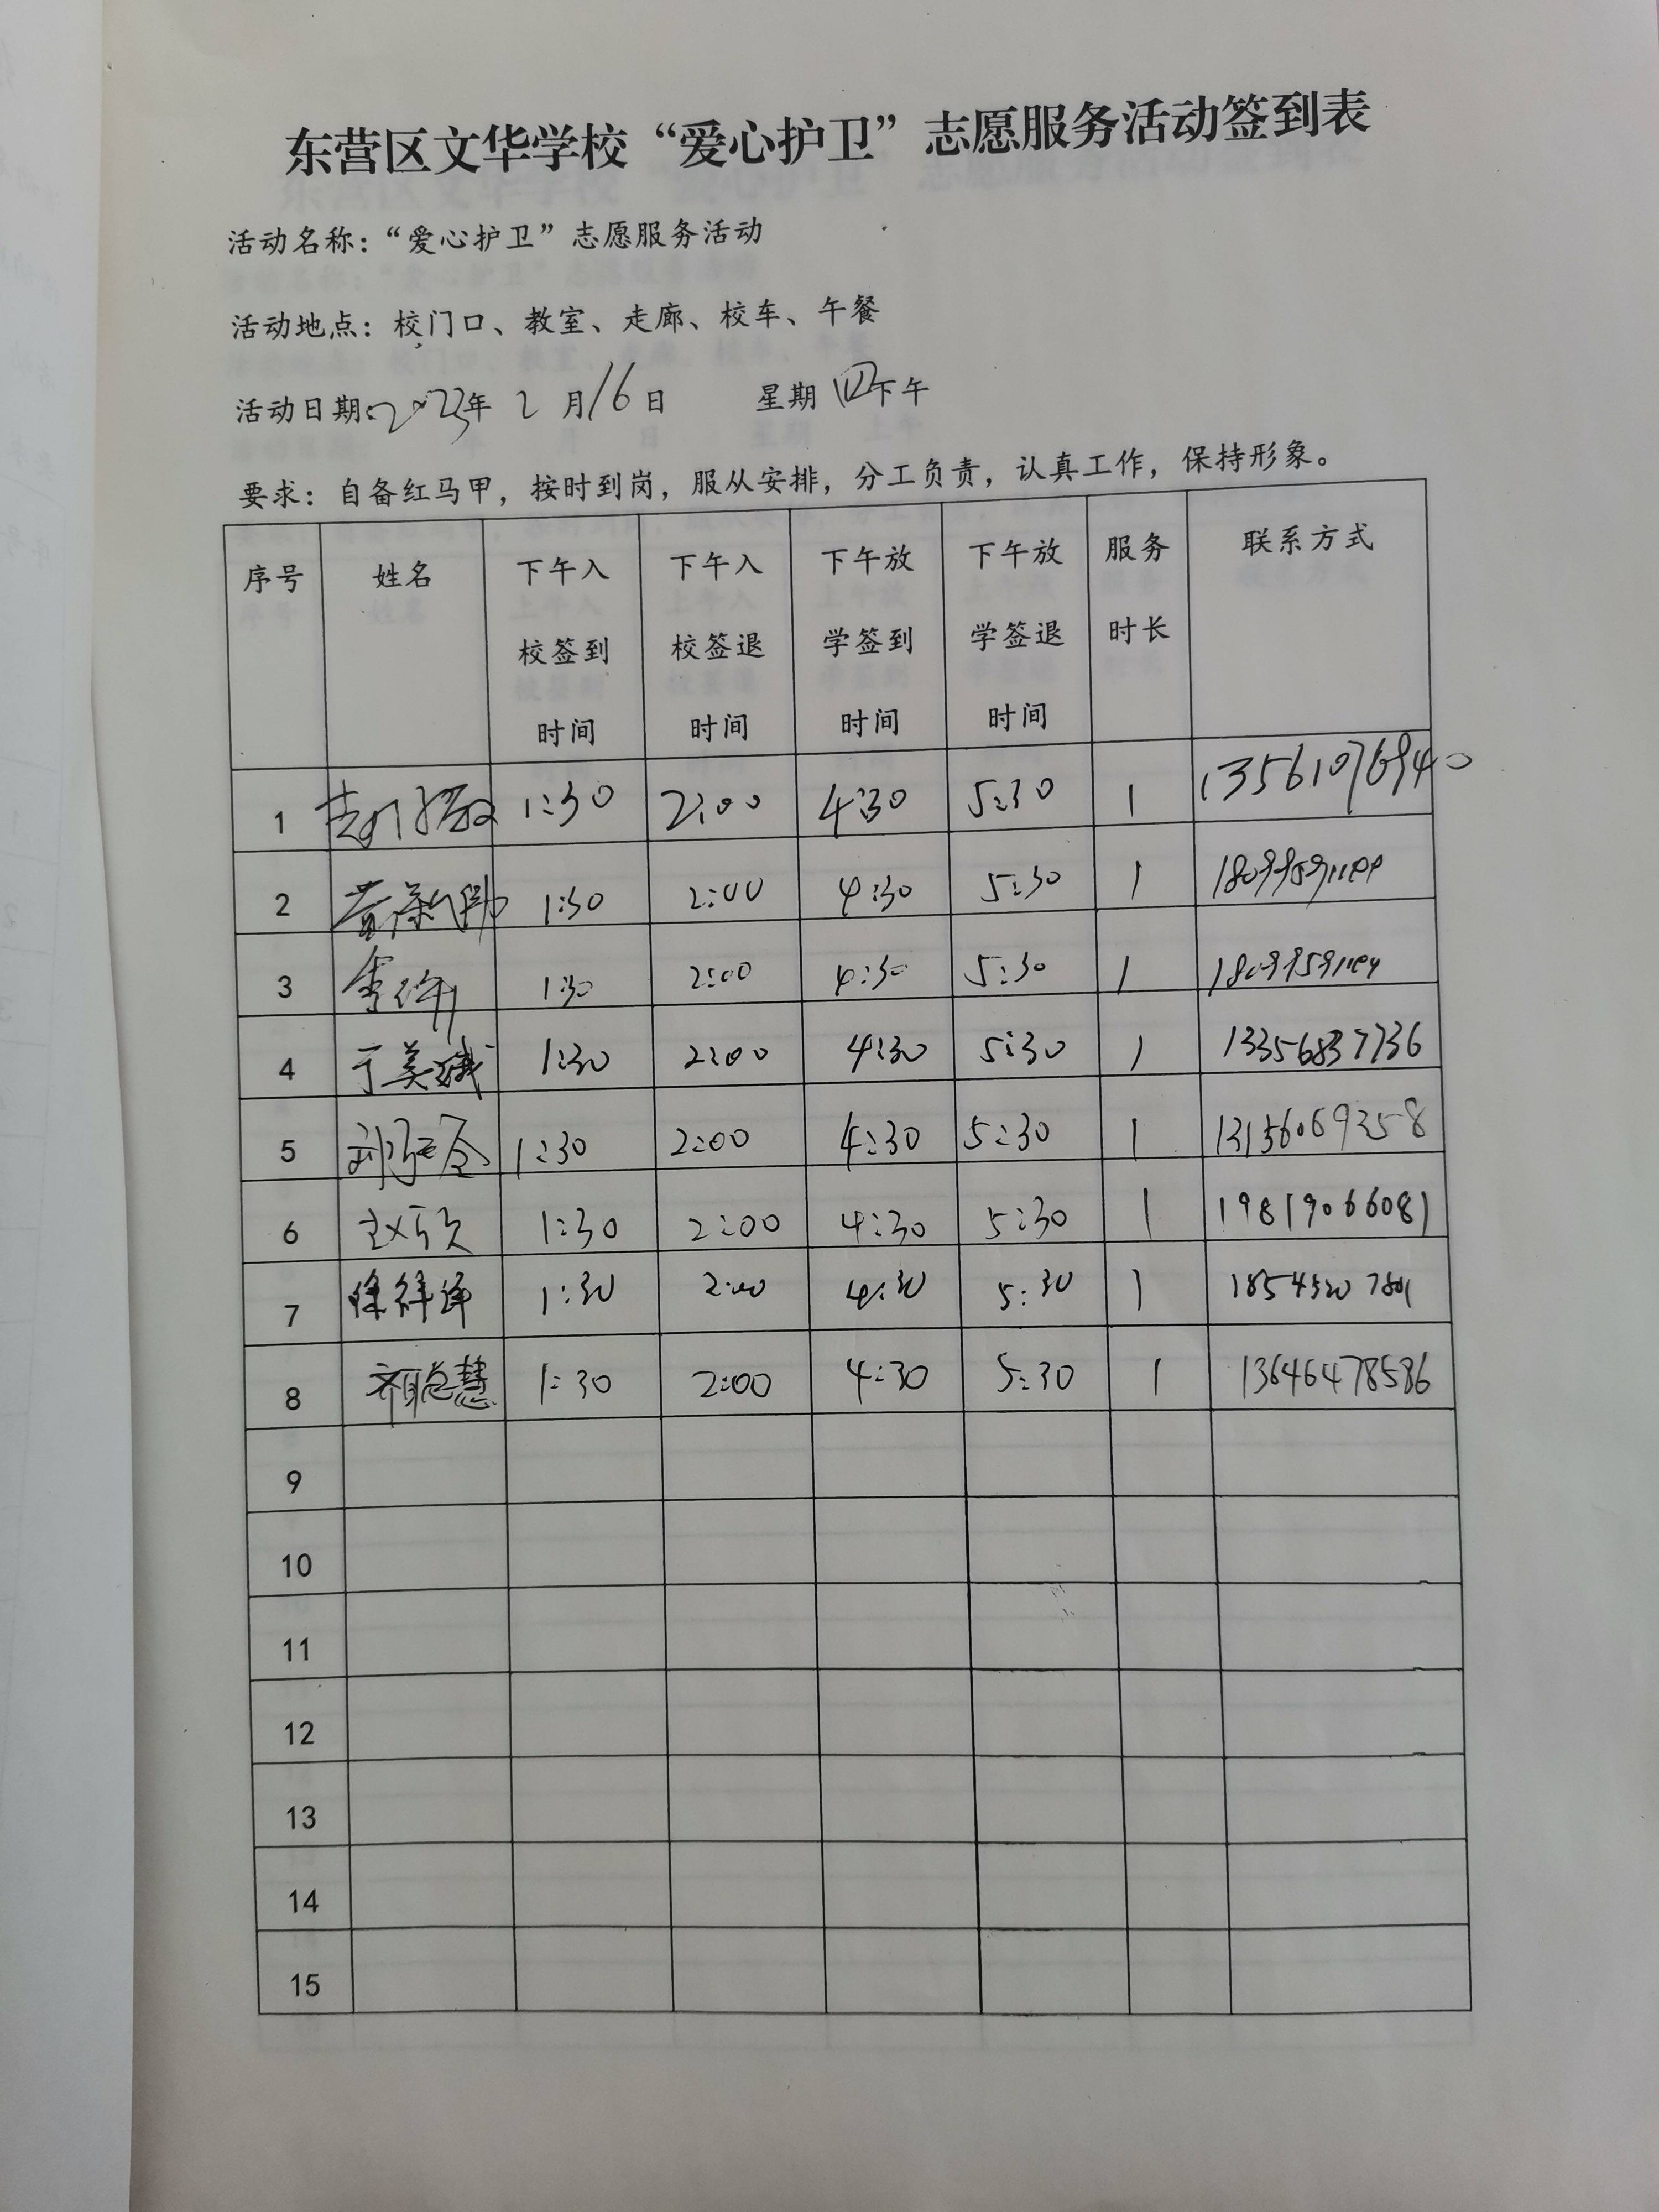 东营区文华学校“爱心护卫”志愿服务活动签到表
活动名称：“爱心护卫”志愿服务活动
活动地点：校门口、教室、走廊、校车、午餐
活动日期：2023年 2 月 16 日 星期 四 下午
要求：自备红马甲，按时到岗，服从安排，分工负责，认真工作，保持形象。
序号 姓名 下午入校签到时间 下午入校签退时间 下午放学签到时间 下午放学签退时间 服务时长 联系方式
1 1:30 2:00 4:30 5:30 1 13561076940
2 1:30 2:00 4:30 5:30 1
3 1:30 2:00 4:30 5:30 1
4 于美娥 1:30 2:00 4:30 5:30 1 13356837736
5 1:30 2:00 4:30 5:30 1 13156069358
6 1:30 2:00 4:30 5:30 1 19819066081
7 徐祥泽 1:30 2:00 4:30 5:30 1
8 齐聪慧 1:30 2:00 4:30 5:30 1 13646478586
9
10
11
12
13
14
15